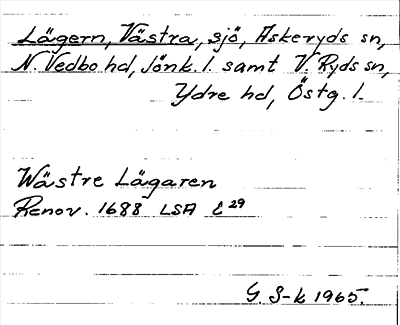 Lägern, Västra, sjö, Askeryds sn,
N. Vedbo hd, Jönk. l. samt V. Ryds sn,
Ydre hd, Östg. l.
Wästre Lägaren
Renov. 1688 LSA E 29
G. S-k 1965.